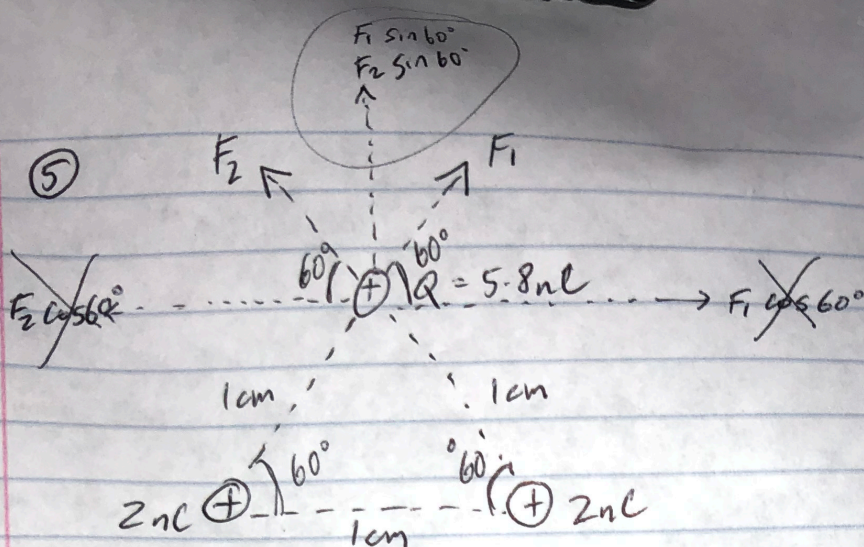 F₁ sin60°
F₂ sin60°
⑤
F₂
F₁
60°
60°
+
Q = 5.8nC
F₂ cos60°
F₁ cos60°
1cm
1cm
60°
°60
2nC +
+ 2nC
1cm